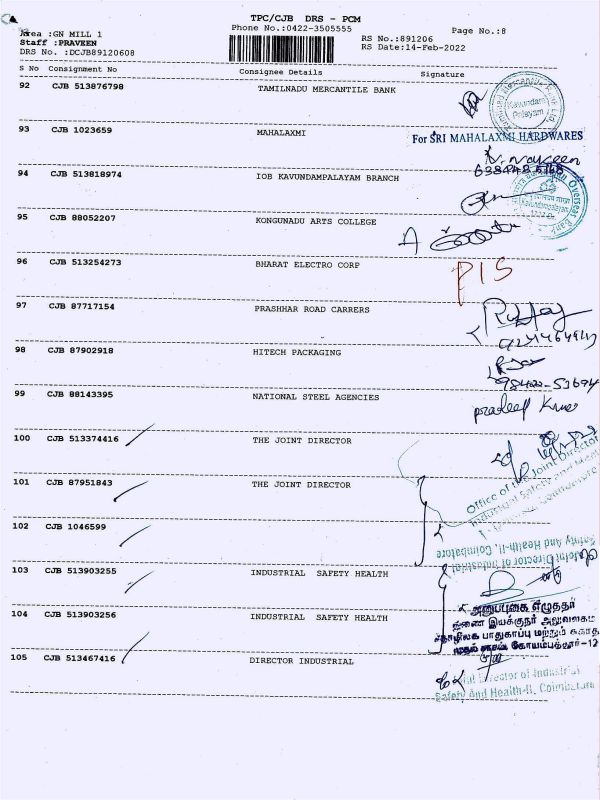 TPC/CJB DRS - PCM
Phone No.:0422-3505555
Page No.:8
Area :GN MILL 1
Staff :PRAVEEN
DRS No. :DCJB89120608
RS No.:891206
RS Date:14-Feb-2022
S No Consignment No Consignee Details Signature
92 CJB 513876798 TAMILNADU MERCANTILE BANK
Kavundam
Palayam
93 CJB 1023659 MAHALAXMI
For SRI MAHALAXMI HARDWARES
N. Naveen
94 CJB 513818974 IOB KAVUNDAMPALAYAM BRANCH
95 CJB 88052207 KONGUNADU ARTS COLLEGE
96 CJB 513254273 BHARAT ELECTRO CORP
P/S
97 CJB 87717154 PRASHHAR ROAD CARRERS
98 CJB 87902918 HITECH PACKAGING
99 CJB 88143395 NATIONAL STEEL AGENCIES
pradeep Kumar
100 CJB 513374416 THE JOINT DIRECTOR
101 CJB 87951843 THE JOINT DIRECTOR
Office of the Joint Director
Industrial Safety and Health
102 CJB 1046599
Safety And Health-II, Coimbatore
Joint Director of Industrial
103 CJB 513903255 INDUSTRIAL SAFETY HEALTH
104 CJB 513903256 INDUSTRIAL SAFETY HEALTH
அனுப்புகை எழுத்தர்
இணை இயக்குநர் அலுவலகம்
தொழிலக பாதுகாப்பு மற்றும் சுகாதா
கோயம்புத்தூர்-12
105 CJB 513467416 DIRECTOR INDUSTRIAL
Director of Industrial
Safety And Health-II, Coimbatore